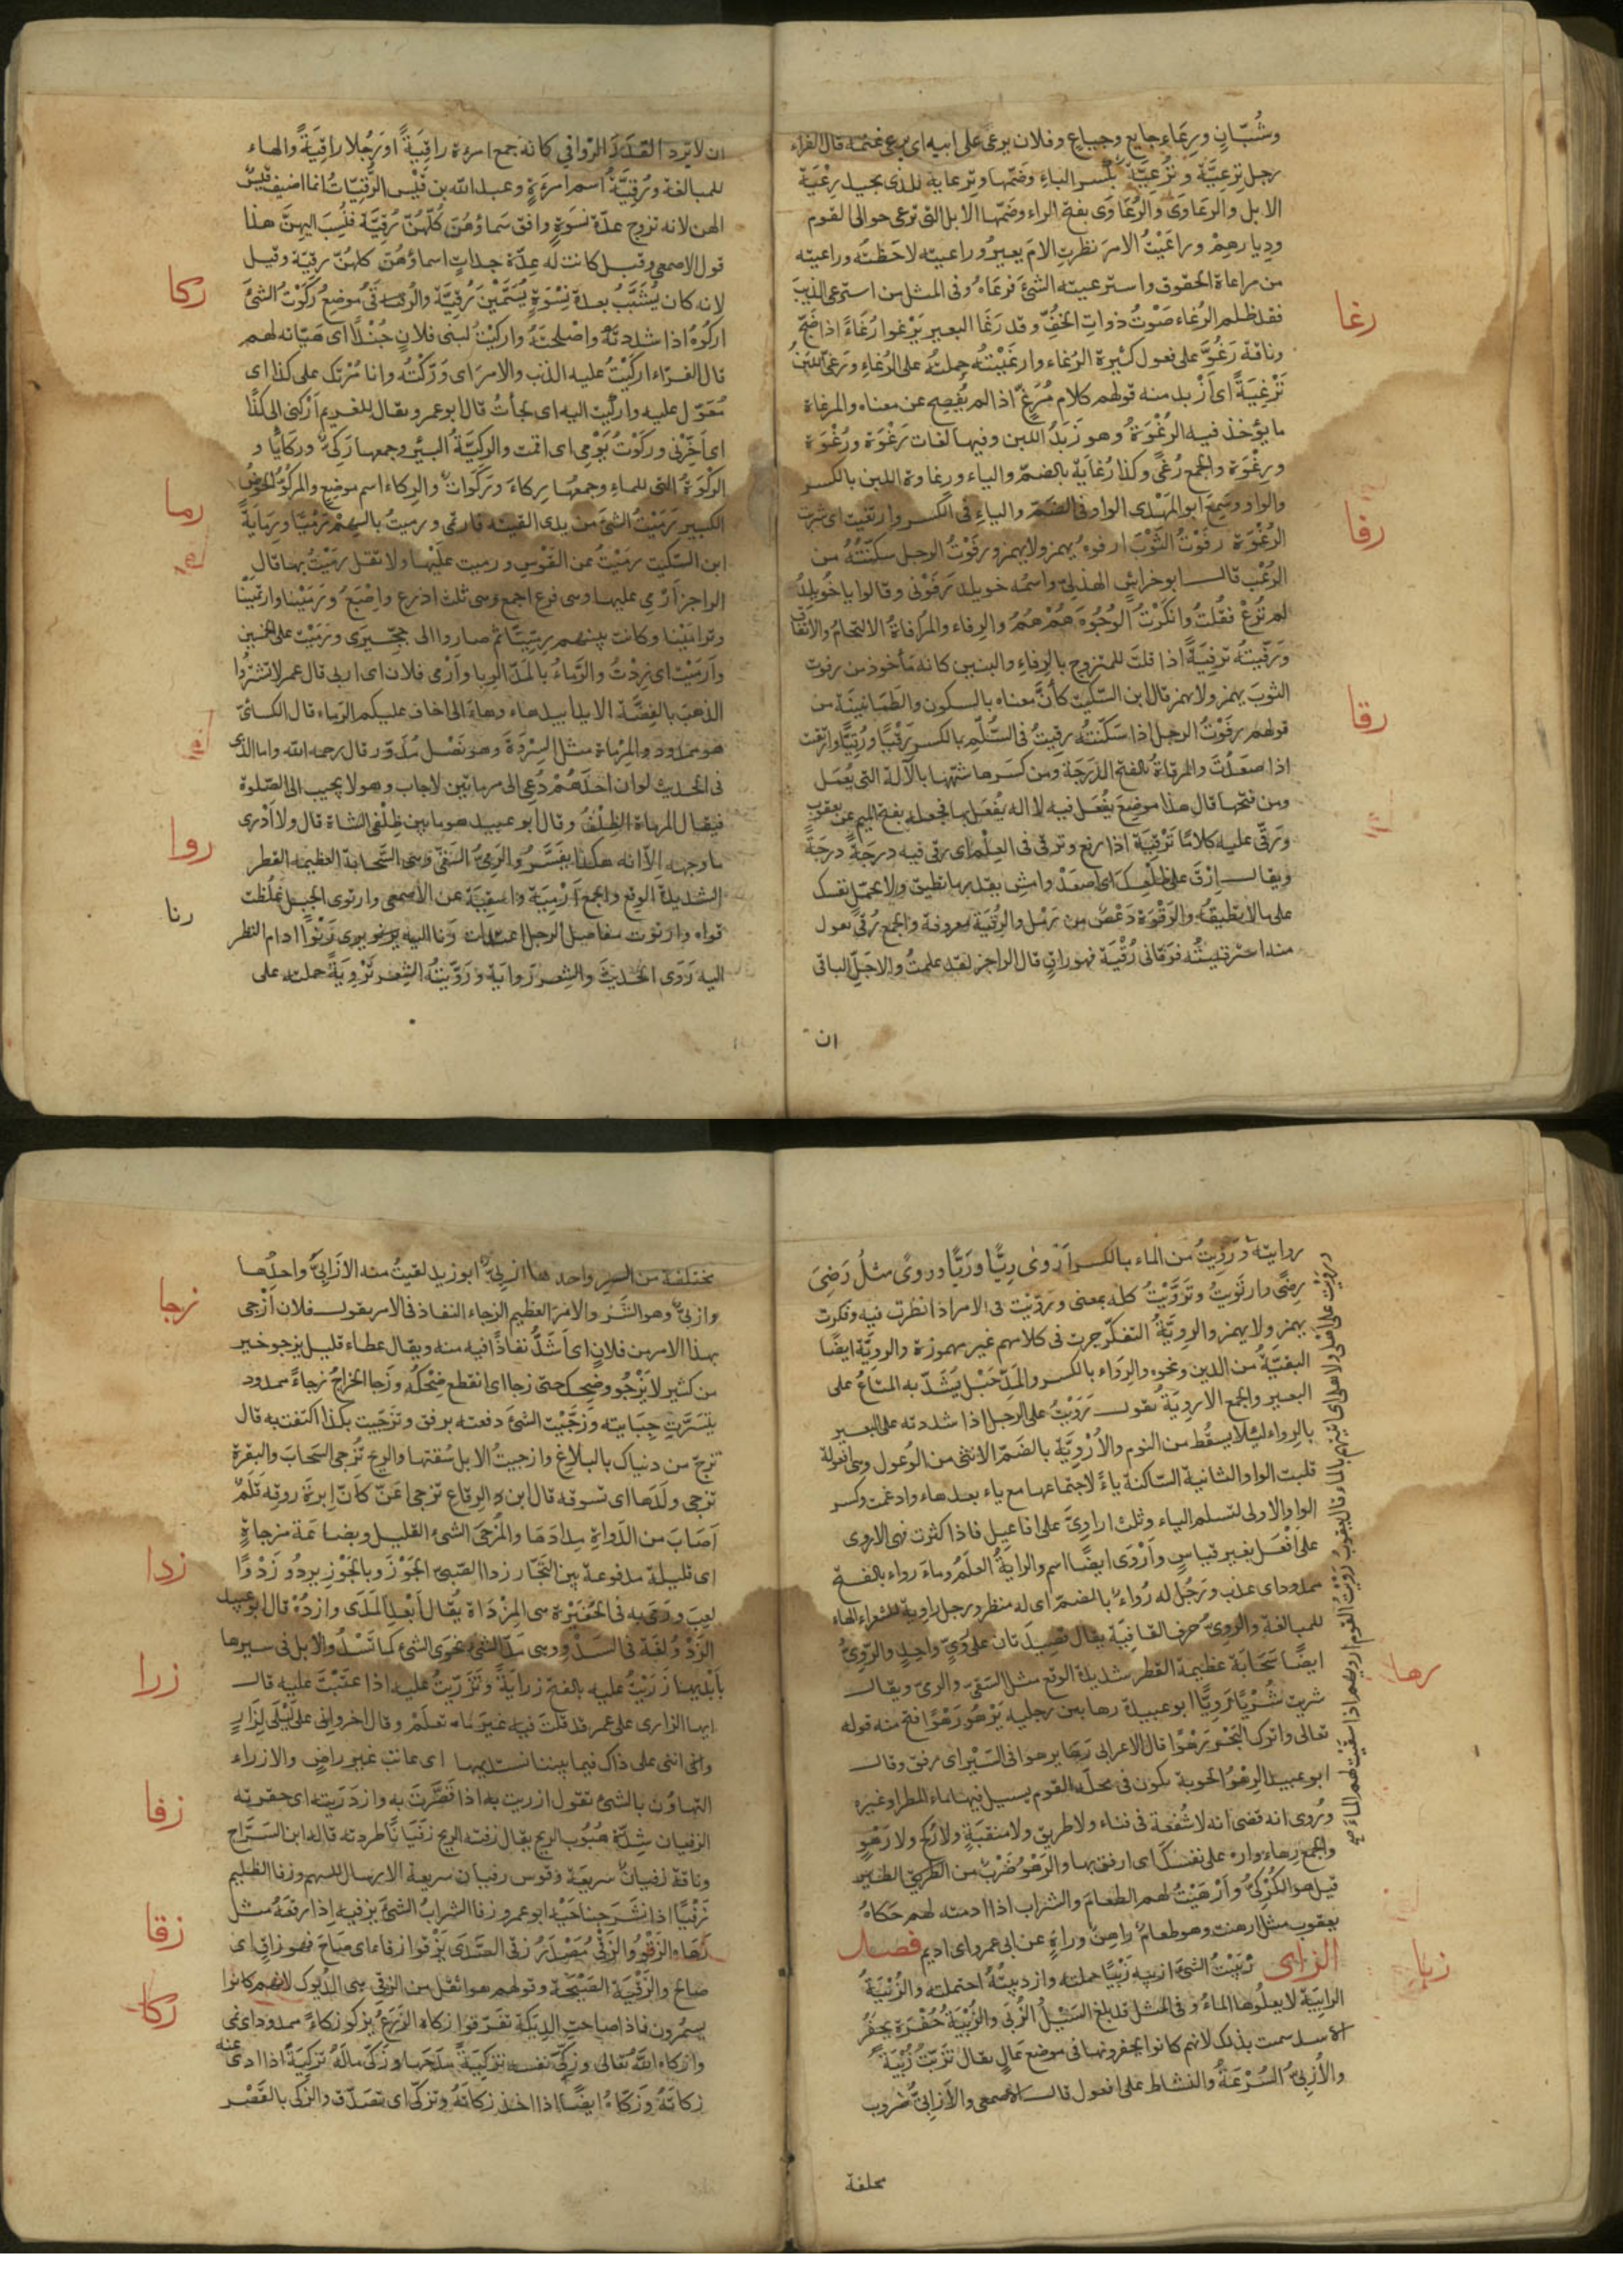 وشُبّانٍ ورِعَاءٍ جايع وجياع وفلان يرعى على ابيه اى يرعى غنمه قال الفراء
رجل تِرْعِيَّة وتُرْعِيَّة بكسر التاء وضمّها وترعاية للذى يجيد رِعْيَة
رغا
الابل والرعَاوَى والرُعَاوَى بفتح الراء وضمّها الابل التى ترعى حوالى القوم
وديارهم وراعَيْتُ الامرَ نظرت الامَ يصيرُ وراعيته لاحَظتُه وراعيته
من مراعاة الحقوق واسترعيته الشئَ فرعَاهُ وفى المثل من استرعى الذيبَ
فقد ظلم الرُغاء صَوْتُ ذواتِ الخُفّ وقد رَغَا البعير يَرْغوا رُغَاءً اذا ضَجّ
وناقة رَغُوٌّ على فعول كثيرة الرُغاء وارغيْتُه حملتُه على الرُغاءِ ورَغّى اللبنُ
تَرْغِيَةً اى أَزْبد منه قولهم كلام مُرَغٍّ اذا لم يُفْصِح عن معناه والمرغاة
ما يؤخذ فيه الرُغْوَةُ وهو زَبَدُ اللبن وفيها لغات رَغْوَة ورُغْوَة
ورِغْوَة والجمع رُغًى وكذا رُغايَة بالضمّ والياء ورِغاوة اللبن بالكسر
والواو وسَمِعَ ابو المَهْدى الواو فى الضَمّ والياءِ فى الكسر وارتغيت اى شربت
رفا
الرُغْوَة رفَوْتُ الثَوْبَ ارفوهُ يهمز ولا يهمز ورفَوْتُ الرجل سكّنتُهُ من
الرُعْب قال ابو خراشٍ الهذلىّ واسمُه خويلد رَفَوْنى وقالوا يا خُوَيلدُ
لم تُرَعْ فقُلتُ وانكَرْتُ الوُجُوهَ هُمْ هُمُ والرِفاء والمُرَافاةُ الالتحامُ والاتفاق
ورَفّيتُه ترفِيَةً اذا قلتَ للمتزوج بالرِفاءِ والبنين كانه مأخوذ من رفوت
الثوبَ يهمز ولا يهمز قال ابن السّكيت كأنَّ معناه بالسكون والطَمَانِينَة من
رقا
قولهم رفَوْتُ الرجل اذا سَكّنتُه رقِيتُ فى السُّلّم بالكسر رَقْيًا ورُقِيًّا وارتقيت
اذا صعَدْتَ والمرقاةُ بالفتح الدَرَجَة ومن كسَرها شبّهها بالآلة التى يُعْمَل
ومن فتحها قال هذا موضِعٌ يُفْعَل فيه لا اله يُفعَل بها فجعله بفتح الميم عن يعقوب
ورَقّى عليه كلامًا تَرْقِيَة اذا رفع وترقى فى العِلْم اى رقى فيه درجَةً درجَةً
ويقال اِرْقَ على ظَلْعِكَ اى اصعَدْ وامشِ بقدر ما تطيق ولا تحمّل نفسك
على ما لا تطيقهُ والرَقْوَة دَعْصٌ من رَمْل والرُقْيَة معروفة والجمع رُقىً تقول
منه استرقيْتُه فرَقانى رُقْيَة فهو راقٍ قال الراجز لقد علمتُ والاجَلّ الباقى
ان
ان لا يَرد القدَرَ الرواقى كانه جمع امرءة راقِيَةً او رَجُلا راقِيَةً والهاء
للمبالغة ورُقيَّةُ اسم امرءَةٍ وعبد الله بن قَيْس الرُقِيّاتُ انما اضيف قيسٌ
الهن لانه تزوج عدّة نسوَةٍ وافق سَماؤهُنّ كُلّهُنّ رُقيَّة فنُسِبَ اليهِنَّ هذا
قول الاصمعى وقيل كانت له عِدّة جداتٍ اسماؤهُنّ كلهُنّ رقيّة وقيل
ركا
لانه كان يُشَبّبُ بعدة نِسْوَةٍ يُسَمّيْنَ رُقِيَّة موضِعٌ رَكَوْتُ الشئَ
اركُوهُ اذا شددتَهُ واصْلحتَهُ واركيْتُ لبنى فلانٍ جُنْدًا اى هَيّاته لهم
قال الفرّاء اركَيْتُ عليه الذنب والامر اى وَرّكْتُه وانا مُرْتَكٍ على كذا اى
مُعَوّل عليه واركيت اليه اى لجأتُ قال ابو عمرو يقال للغريم أَرْكِنى الى كذا
اى أَخِّرْنى وركَوْتُ يَوْمى اى اقمت والركيّةُ البئر وجمعها رَكِىٌّ ورَكَايَا و
الركْوَةُ التى للماءِ وجمعُها رِكاءَ ورَكَوَاتٌ والرِكاء اسم موضِع والمركُوّ الحوضُ
رما
الكبير رَمَيْتُ الشئ من يدى القيته فارتمى ورميتُ بالسهم رَمْيًا ورِمَايَةً
ابن السّكيت رمَيْتُ عن القَوْسِ ورميت عليْها ولا تقل رمَيْتُ بها قال
الراجز أرْمى عليها وهى فرع اجمع وهى ثلث اذرع واِصْبَعُ ورَمَيْنا وارتَمَيْنا
وترامَيْنا وكانت بينهم رِمِّيَّا ثم صاروا الى حِجّيزى ورَمَيْت على الخمسين
وأَرمَيْت اى زِدْتُ والرَماءُ بالمدّ الرِبا وأَرْمى فلان اى اربى قال عمر لا تشتَرُوا
الذهبَ بالفِضَّة الا يدا بيد هاء وهاءَ الى اخاف عليكم الرَماء قال الكسائىّ
هو ممدود والمِرْماة مثل السِرْوَةَ وهو نَصْل مُدَوّر قال رحمه الله واما الذى
فى الحديث لو ان احدَهُمْ دُعِى الى مرماتين لاجاب وهو لا يجيب الى الصّلوة
فيقال المرماة الظِلْفُ وقال ابو عبيد هو ما بين ظِلْفى الشاة قال ولا أَدْرى
روا
ما وجهه الّا انه هكذا يفَسَّرُ والرَمِىّ السَقىّ وهى السَّحَابة العظيمة القطر
الشديدة الوقع والجمع أَرْمِيَة واسقِيَة عن الاصمعى وارتوى الحبل غلُظت
رنا
قواه وارتوَت مفاصل الرجل اعتدلت وَرنا اليه يرنو رُنُوًّا ادام النظر
اليه رَوَى الحديثَ والشِعر روايةً ورَوَّيتُه الشِعر تَرْوِيَةً حملته على
رواية ورَوِيتُ من الماء بالكسر أَرْوى رِيًّا ورَيًّا وروىً مثلُ رَضِىَ
رِضًى وارتَويتُ وتَرَوَّيْتُ كله بمعنى ورَوّيْت فى الامر اذا نظرت فيه وفكرت
يهمز ولا يهمز والرويَّةُ التفكّر جرت فى كلامهم غير مهموزة والرويَّة ايضًا
البقيّةُ من الدين ونحوه والرِوَاء بالكسر والمَدّ حَبْل يُشَدّ به المتاعُ على
البعير والجمع الاروِيَةُ تقول رَوَيْتُ على الرجل اذا شددته على البعير
بالرِواء لئلا يسقُط من النوم والأُرْوِيَّة بالضَمّ الانثى من الوُعول وهى افعولة
قلبت الواو الثانية السّاكنة ياءً لاجتماعها مع ياء بعدها وادغمت وكسر
الواو الاولى لتسلم الياء وثلث اراوِىّ على افاعيل فاذا كثرت فهى الاروى
على أفْعَل بغير قياسٍ وأَرْوَى ايضًا اسم والرايَةُ العلَمُ وماءَ رواء بالفتح
ممدود اى عذب ورَجُل له رُواءٌ بالضمّ اى له منظر ورجل راوية للشعر والهاء
للمبالغة والروِىّ حرف القافِيَة يقال قصيدتان على رَوِىّ واحدٍ والرَوِىُّ
رها
ايضًا سَحَابَة عظيمة القطر شديدة الوقع مثل السَقىّ والرىّ ويقال
شربت شُرْبًا رَوِيًّا ابو عبيدة رها بين رجليه يَرْهُو رَهْوًا فتح منه قوله
تعالى واترك البَحْرَ رَهْوًا قال الاعرابى رَها يرهوا فى السَيْر اى رفق وقال
ابو عبيد الرهْوُ الجوبة تكون فى محلّة القوم يسيل فيها ماء المطر او غيره
ورُوى انه قضى انه لا شُفْعة فى فناء ولا طريق ولا منقَبَةٍ ولا رُكْحٍ ولا رَهْوٍ
والجمع رِهاء واره على نفسك اى ارفق بها والرَهْوُ ضَرْبٌ من الطير
قيل هو الكُرْكىُّ وأَرْهَيْتُ لهم الطعامَ والشراب اذا ادمته لهم حَكاهُ
يعقوب مثل ارهنت وهو طعامٌ راهِنٌ وراهٍ عن ابى عمرو اى دايم فصل
زبا
الزاى زَبَيْتُ الشئَ ازبيه زَبْيًا حملته وازدبيْتُهُ احتملته والزُبْيَةُ
الرابِيَة لا يعلُوها الماءُ وفى المثل قد بلغ السَيْلُ الزُبَى والزُبْيَةُ حُفْرَة تُحفَرُ
للاسد سمت بذلك لانهم كانوا يحفرونها فى موضع عَالٍ يقال تزَبّيْتُ زُبْيَةً
والأُزبىّ السُرْعَةُ والنشاط على افعول قال الاصمعى والأزابىُّ ضُروب
مختلفة
مختلفة من السير واحدها أُزبِىٌّ ابو زيد لقيتُ منه الازَابِىَّ واحدُها
زجا
وازبىٌّ وهو الشَرُّ والامرُ العظيم الزجاء النفاذ فى الامر يقول فلان أَزْجى
بهذا الامر من فلانٍ اى أَشَدُّ نفاذًا فيه منه ويقال عطاء قليل يزجو خير
من كثير لا يَزْجُو وضحك حتى زجا اى انقطع ضِحْكُه وزَجا الخراجُ زجاءً ممدود
تيَسَّرَتْ جِبَايته وزجَّيْت الشئَ دفعته برفق وتزَجّيت بكذا اكتفت به قال
تزجّ من دنياك بالبلاغ وازجيتُ الابل سُقتها والريح تُزجى السَحابَ والبقرة
تزجى ولَدَها اى تسوقه قال ابن الرِقاعِ تزجى اَغَنّ كأَنّ اِبرَةَ روقه قلَمٌ
أصَابَ من الدَواةِ مِدادَهَا والمُزجَى الشئ القليل وبضاعَة مزجاة
زدا
اى قليلة مدفوعة بين التجّار زدا الصّبىّ الجَوْزَ وبالجَوْزِ يزدُو زَدْوًا
لعِبَ ورَمَى به فى الحُفَيْرَة وهى المِزْدَاة يُقال أَبْعد المَدَى وازدُهْ قال ابو عبيد
الزَدْوُ لغَة فى السَدْوِ وهى مَدّ اليد نَحوَ الشئ كما تَسْدُو الابل فى سيرها
زرا
بأَيْديها زَرَيْتُ عليه بالفتح زرايَةً وتَزَرّيْتُ عليه اذا عتَبْتَ عليه قال
ايها الزارى على عمر قد قلتَ فيه غيرَ ما تعلَمْ وقال اخر وانى على لَيْلَى لَزَارٍ
وانى انى على ذاك فيما بيننا مستديمها اى عاتب غير راضٍ والازراء
زفا
التهاوُن بالشئ تقول ازريت به اذا قَصَّرتَ به وازدَرَيته اى حقرته
الزفيان شِدّة هُبُوب الريح يقال زفته الريح زفَيَانًا طردته قاله ابن السَرّاج
وناقة زفيانٌ سريعَة وقوس زفيان سريعة الارسال للسهم وزفا الظليم
زقا
زَفْيًا اذا نَشَرَ جناحَيْهِ ابو عمرو زفا السَرابُ الشئَ يزفيه اذا رفعَهُ مثل
زهاه الزَقْوُ والزَقْىُ مَصْدَرُ زقى الصَدَى يَزقوا زقاءً اى صَاحَ فهو زاقٍ اى
زكا
صايح والزَقْيَة الصَيْحَة وقولهم هو اثقل من الزواقى هى الدُيوك لانهم كانوا
يسمُرون فاذا صاحت الدِيَكة تفَرّقوا زكاه الزَرعُ يزكو زكاءً ممدود اى نمى
وازكاه اللّهُ تعالى وزكىّ نفسه تزكِيَةً مدَحها وزَكّى مالَهُ تزكيَةً اذا ادى عنه
زكاتَهُ وزَكّاهُ ايضًا اذا اخذ زكاتَهُ وتزكّى اى تصَدّق والزكى بالقَصْر